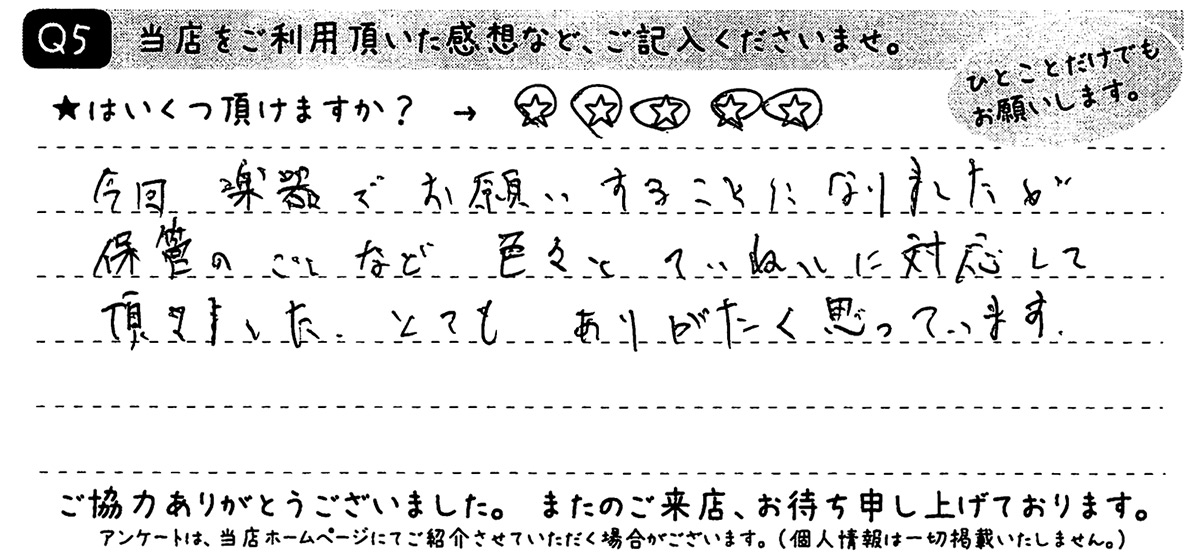 Q5 当店をご利用頂いた感想など、ご記入くださいませ。
ひとことだけでも
お願いします。
★はいくつ頂けますか? → ☆☆☆☆☆
今回 楽器でお願いすることになりましたが
保管のことなど 色々とていねいに対応して
頂きました。とても ありがたく思っています.
ご協力ありがとうございました。 またのご来店、お待ち申し上げております。
アンケートは、当店ホームページにてご紹介させていただく場合がございます。(個人情報は一切掲載いたしません。)